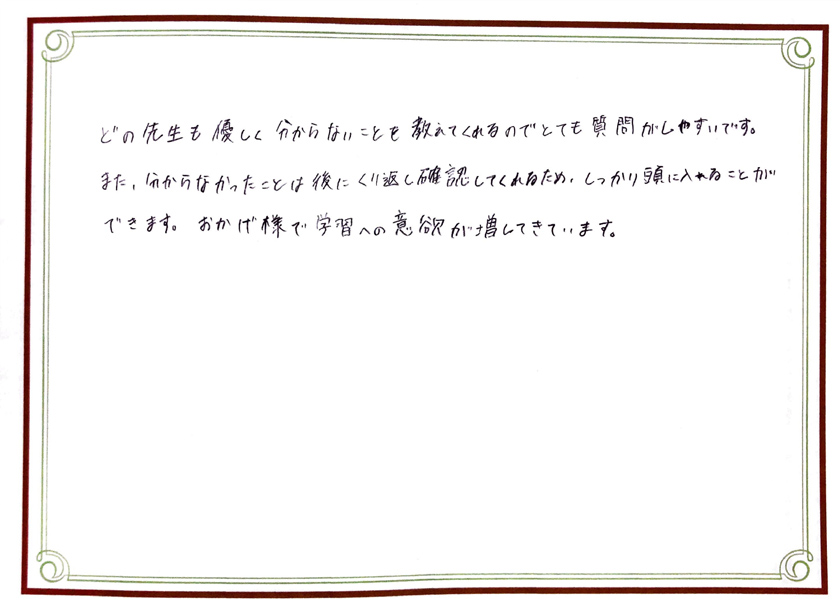 どの先生も優しく分からないことを教えてくれるのでとても質問がしやすいです。
また、分からなかったことは後にくり返し確認してくれるため、しっかり頭に入れることが
できます。おかげ様で学習への意欲が増してきています。